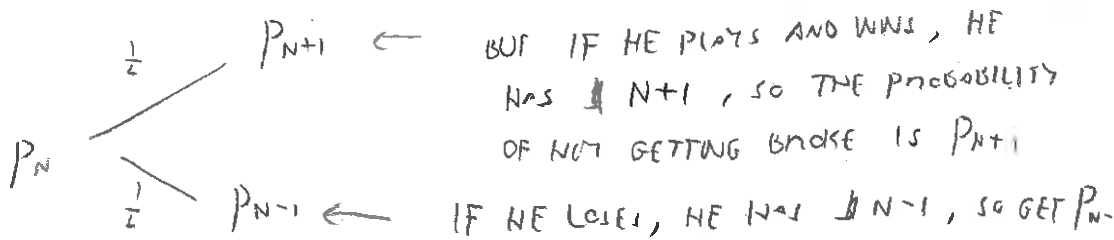 1/2 P_{N+1} ← BUT IF HE PLAYS AND WINS, HE
HAS $ N+1, SO THE PROBABILITY
OF NOT GETTING BROKE IS P_{N+1}
P_N
1/2 P_{N-1} ← IF HE LOSES, HE HAS $ N-1, SO GET P_{N-